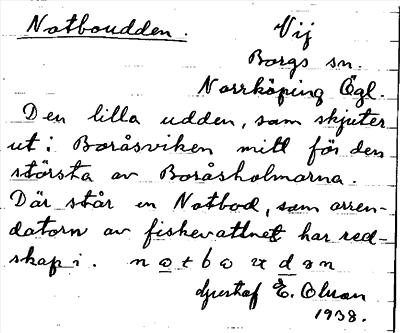 Notboudden.
Vij
Borgs sn.
Norrköping Ögl.
Den lilla udden, som skjuter
ut i Boråsviken mitt för den
största av Boråsholmarna.
Där står en Notbod, som arren-
datorn av fiskevattnet har red-
skap i. notbo
E. Olson
1938.